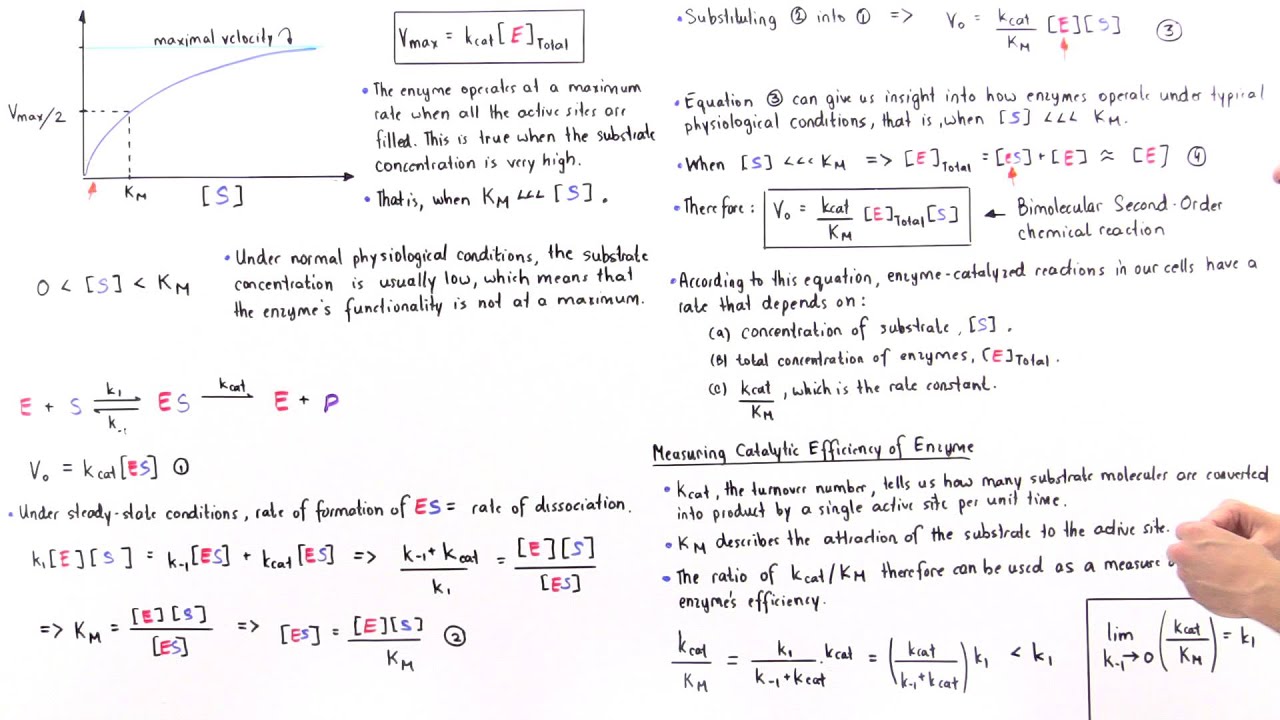 maximal velocity
Vmax/2
KM
[S]
Vmax = kcat[E]Total
• The enzyme operates at a maximum
rate when all the active sites are
filled. This is true when the substrate
concentration is very high.
• That is, when KM <<< [S].
0 < [S] < KM
• Under normal physiological conditions, the substrate
concentration is usually low, which means that
the enzyme's functionality is not at a maximum.
E + S k1 k-1 ES kcat → E + P
V0 = kcat[ES] ①
• Under steady-state conditions, rate of formation of ES = rate of dissociation.
k1[E][S] = k-1[ES] + kcat[ES] => (k-1 + kcat)/k1 = [E][S]/[ES]
=> KM = [E][S]/[ES] => [ES] = [E][S]/KM ②
• Substituting ② into ① => V0 = kcat/KM [E][S] ③
• Equation ③ can give us insight into how enzymes operate under typical
physiological conditions, that is, when [S] <<< KM.
• When [S] <<< KM => [E]Total = [ES] + [E] ≈ [E] ④
• Therefore: V0 = kcat/KM [E]Total[S] ← Bimolecular Second-Order
chemical reaction
• According to this equation, enzyme-catalyzed reactions in our cells have a
rate that depends on:
(a) concentration of substrate, [S].
(B) total concentration of enzymes, [E]Total.
(c) kcat/KM, which is the rate constant.
Measuring Catalytic Efficiency of Enzyme
• Kcat, the turnover number, tells us how many substrate molecules are converted
into product by a single active site per unit time.
• KM describes the attraction of the substrate to the active site.
• The ratio of kcat/KM therefore can be used as a measure
enzyme's efficiency.
kcat/KM = k1/(k-1 + kcat) · kcat = (kcat/(k-1 + kcat)) k1 < k1
lim k-1→0 (kcat/KM) = k1